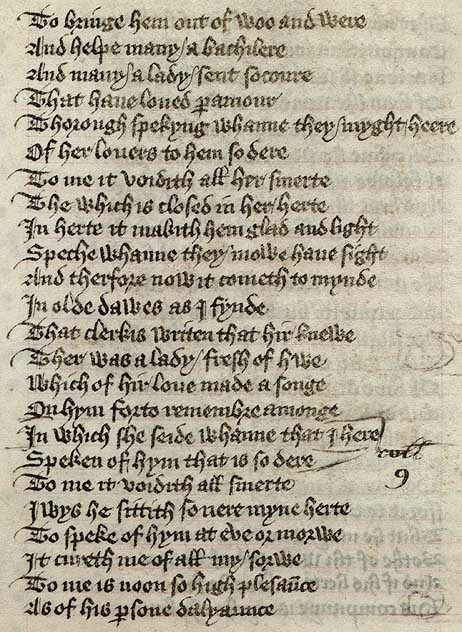 To bringe hem out of woo and were
And helpe many a bachilere
And many a lady sent socoure
That haue loued paramour
Thorough spekyng whanne they myght heere
Of her louers to hem so dere
To me it voidith all her smerte
The which is closed in her herte
In herte it makith hem glad and light
Speche whanne they mowe haue sight
And therfore now it cometh to mynde
In olde dawes as I fynde
That clerkis writen that hir knewe
Ther was a lady fresh of hwe
Which of hir loue made a songe
On hym forto remembre amonge
In which she seide whanne that I here
Speken of hym that is so dere
coll
9
To me it voidith all smerte
Iwys he sittith so nere myne herte
To speke of hym at eve or morwe
It cureth me of all my sorwe
To me is noon so high plesaūce
As of his psone dalyaunce